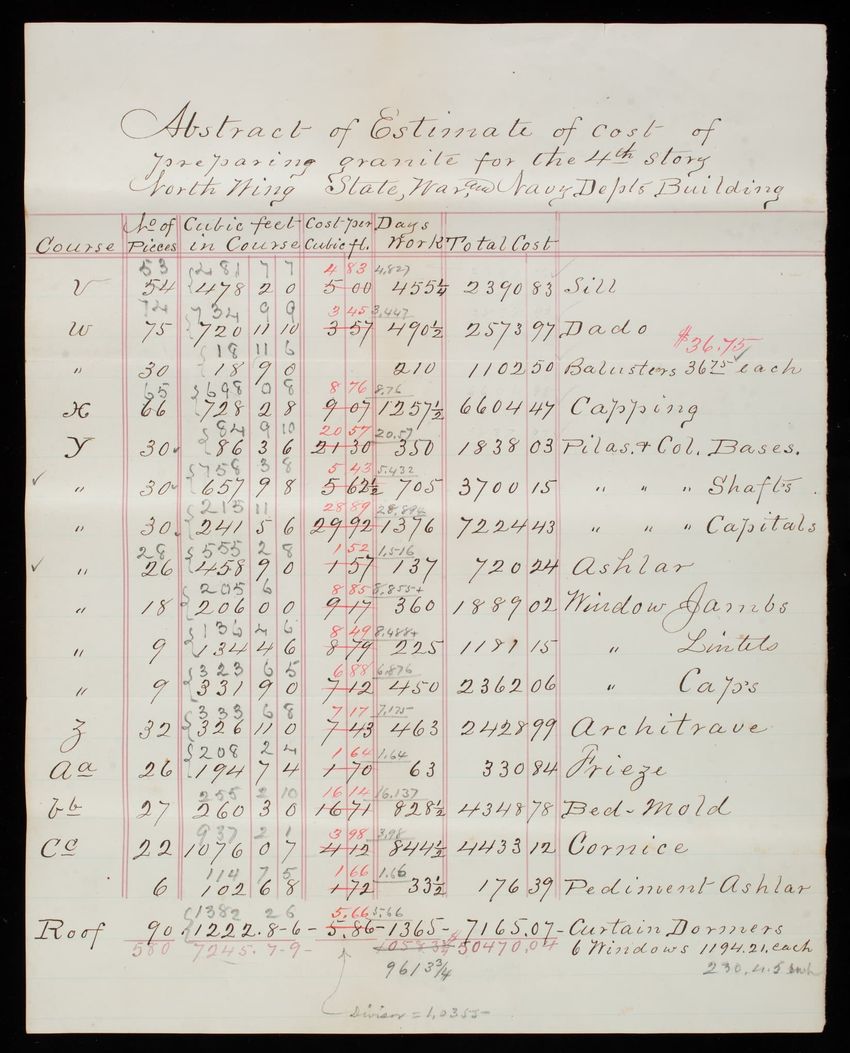 Abstract of Estimate of cost of
preparing granite for the 4th Story
North Wing State, War, and Navy Depts Building
Course No of Pieces Cubic feet in Course Cost per Cubic ft. Days Work Total Cost
53 481 7 7 4 83 4.827
V 54 478 2 0 5 00 455¼ 2390 83 Sill
74 734 9 9 3 45 3.447
W 75 720 11 10 3 57 490½ 2573 97 Dado
18 11 6 $36.75
" 30 18 9 0 210 1102 50 Balusters 36 75 each
65 698 0 8 8 76 8.76
X 66 728 2 8 9 07 1257½ 6604 47 Capping
84 9 10 20 57 20.57
Y 30 86 3 6 21 30 350 1838 03 Pilas. & Col. Bases.
758 3 8 5 43 5.432
✓ " 30 657 9 8 5 62½ 705 3700 15 " " " Shafts
215 11 28 89 28.894
" 30 241 5 6 29 92 1376 7224 43 " " " Capitals
28 555 2 8 1 52 1.516
✓ " 26 458 9 0 1 57 137 720 24 Ashlar
205 6 8 85 8.855+
" 18 206 0 0 9 17 360 1889 02 Window Jambs
136 4 6 8 49 8.488+
" 9 134 4 6 8 79 225 1181 15 " Lintels
323 6 5 6 88 6.876
" 9 331 9 0 7 12 450 2362 06 " Caps
333 6 8 7 17 7.175
Z 32 326 11 0 7 43 463 2428 99 Architrave
208 2 4 1 64 1.64
Aa 26 194 7 4 1 70 63 330 84 Frieze
255 2 10 16 14 16.137
bb 27 260 3 0 16 71 828½ 4348 78 Bed-Mold
937 2 1 3 98 3.98
Cc 22 1076 0 7 4 12 844½ 4433 12 Cornice
114 7 5 1 66 1.66
6 102 6 8 1 72 33½ 176 39 Pediment Ashlar
1382 2 6 5.66 5.66
Roof 90 1222.8-6- 5.86- 1365- 7165.07- Curtain Dormers
580 7245.7-9- $50470.04 6 Windows 1194.21. each
9613¾
Divisor = 1,0355-